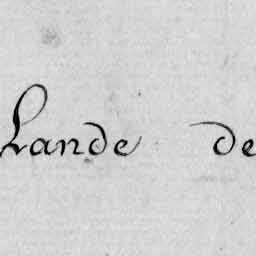 Lande de